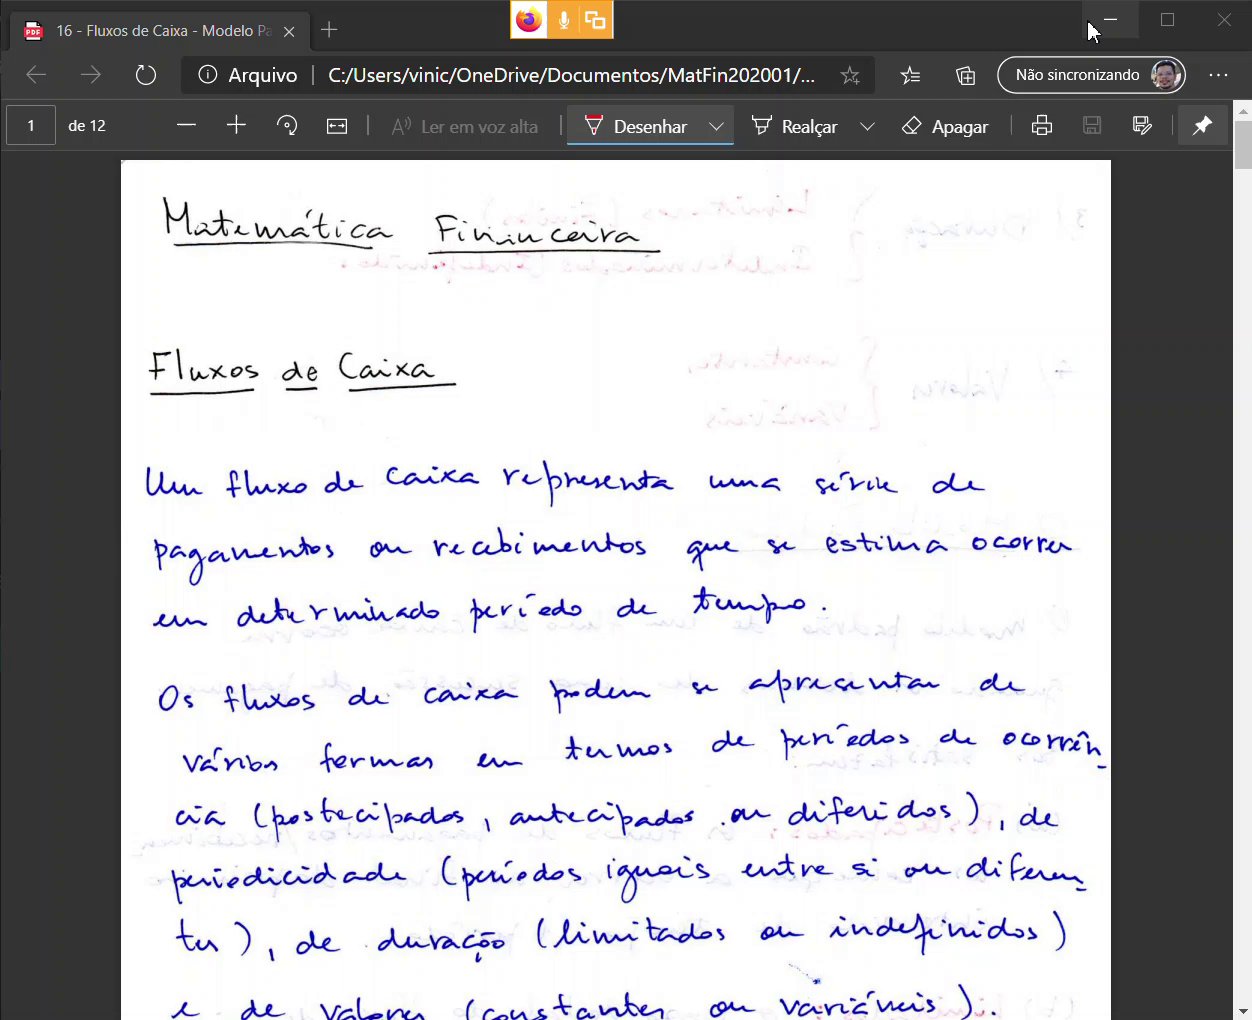 16 - Fluxos de Caixa - Modelo Pa
Arquivo
C:/Users/vinic/OneDrive/Documentos/MatFin202001/...
Não sincronizando
1
de 12
Ler em voz alta
Desenhar
Realçar
Apagar
Matemática Financeira
Fluxos de Caixa
Um fluxo de caixa representa uma série de
pagamentos ou recebimentos que se estima ocorrer
em determinado período de tempo.
Os fluxos de caixa podem se apresentar de
várias formas em termos de períodos de ocorrên-
cia (postecipados, antecipados ou diferidos), de
periodicidade (períodos iguais entre si ou diferen-
tes), de duração (limitados ou indefinidos)
e de valores (constantes ou variáveis).